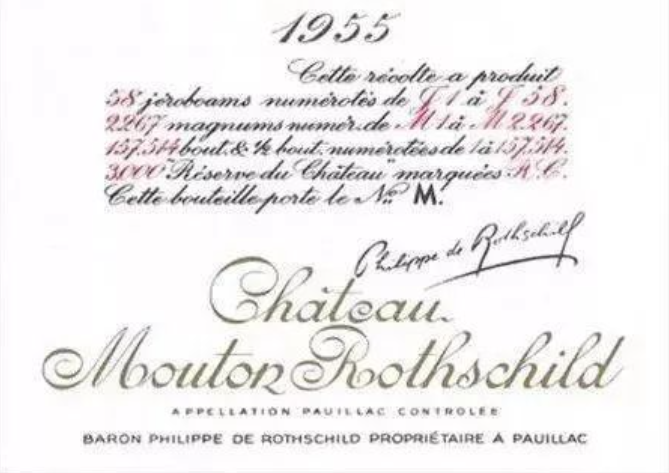 1955
Cette récolte a produit
58 jéroboams numérotés de J 1 à J 58.
2267 magnums numér. de M 1 à M 2267.
157.514 bout. & ½ bout. numérotées de 1 à 157.514.
3000 "Réserve du Château" marquées R.C.
Cette bouteille porte le No M.
Philippe de Rothschild
Château
Mouton Rothschild
APPELLATION PAUILLAC CONTROLÉE
BARON PHILIPPE DE ROTHSCHILD PROPRIÉTAIRE À PAUILLAC